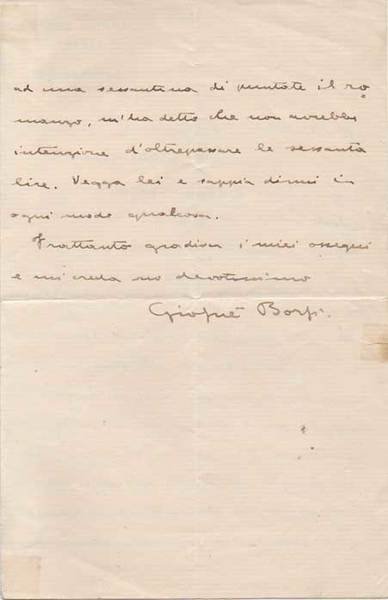 ad una sessantina di puntate il ro=
manzo, m'ha detto che non avrebbe
intenzione d'oltrepassare le sessanta
lire. Vegga lei e sappia dirmi in
ogni modo qualcosa.
Frattanto gradisca i miei ossequi
e mi creda suo devotissimo
Giosuè Borsi.